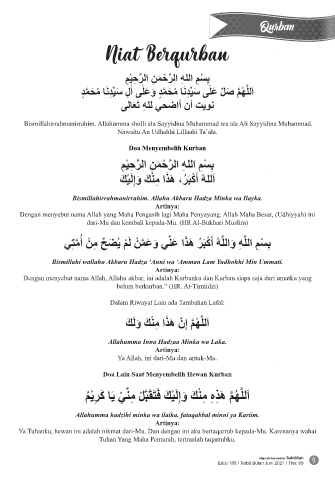 Qurban
Niat Berqurban
بِسْمِ اللهِ الرَّحْمَنِ الرَّحِيْمِ
اَللَّهُمَّ صَلِّ عَلَى سَيِّدِنَا مُحَمَّدٍ وَعَلَى آلِ سَيِّدِنَا مُحَمَّدٍ
نويت أن أضحي لله تعالى
Bismillahirrahmanirrahim. Allahumma sholli ala Sayyidina Muhammad wa ala Ali Sayyidina Muhammad.
Nawaitu An Udhahhi Lillaahi Ta'ala.
Doa Menyembelih Kurban
بِسْمِ اللهِ الرَّحْمَنِ الرَّحِيْمِ
اَللهُ أَكْبَرُ، هَذَا مِنْكَ وَإِلَيْكَ
Bismillahirrahmanirrahim. Allahu Akbaru Hadza Minka wa Ilayka.
Artinya:
Dengan menyebut nama Allah yang Maha Pengasih lagi Maha Penyayang. Allah Maha Besar, (Udhiyyah) ini
dari-Mu dan kembali kepada-Mu. (HR Al-Bukhari Muslim)
بِسْمِ اللَّهِ وَاللَّهُ أَكْبَرُ هَذَا عَنِّي وَعَمَّنْ لَمْ يُضَحِّ مِنْ أُمَّتِي
Bismillahi wallahu Akbaru Hadza 'Anni wa 'Amman Lam Yudhohhi Min Ummati.
Artinya:
Dengan menyebut nama Allah, Allahu akbar, ini adalah Kurbanku dan Kurban siapa saja dari umatku yang
belum berkurban." (HR. At-Tirmidzi)
Dalam Riwayat Lain ada Tambahan Lafal:
اَللَّهُمَّ إِنَّ هَذَا مِنْكَ وَلَكَ
Allahumma Inna Hadzaa Minka wa Laka.
Artinya:
Ya Allah, ini dari-Mu dan untuk-Mu.
Doa Lain Saat Menyembelih Hewan Kurban
اَللَّهُمَّ هَذِهِ مِنْكَ وَإِلَيْكَ فَتَقَبَّلْ مِنِّيْ يَا كَرِيْمُ
Allahumma hadzihi minka wa ilaika, fataqabbal minni ya Kariim.
Artinya:
Ya Tuhanku, hewan ini adalah nikmat dari-Mu. Dan dengan ini aku bertaqarrub kepada-Mu. Karenanya wahai
Tuhan Yang Maha Pemurah, terimalah taqarrubku.
Sabilillah
Edisi 166 / Terbit Bulan Juni 2021 / Thn: 09
9